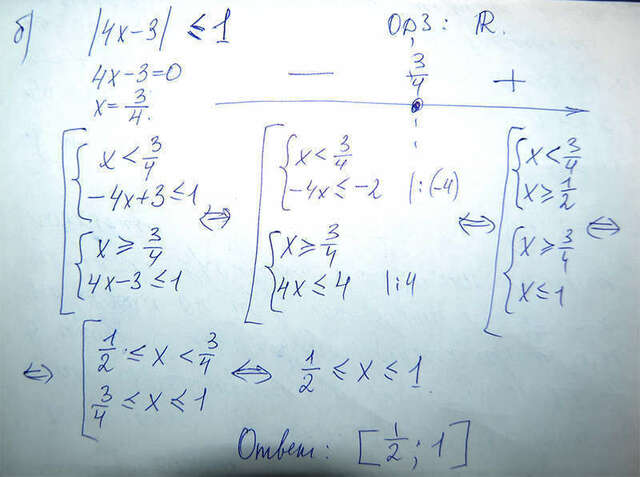 б) |4x-3| ≤ 1 ОДЗ: ℝ.
4x-3=0
x=3/4.
— 3/4 +
[ { x < 3/4 ; -4x+3 ≤ 1 } { x ≥ 3/4 ; 4x-3 ≤ 1 } ⇔ [ { x < 3/4 ; -4x ≤ -2 |:(-4) } { x ≥ 3/4 ; 4x ≤ 4 |:4 } ⇔ [ { x < 3/4 ; x ≥ 1/2 } { x ≥ 3/4 ; x ≤ 1 } ⇔
⇔ [ 1/2 ≤ x < 3/4 ; 3/4 ≤ x ≤ 1 ⇔ 1/2 ≤ x ≤ 1
Ответ: [1/2; 1]